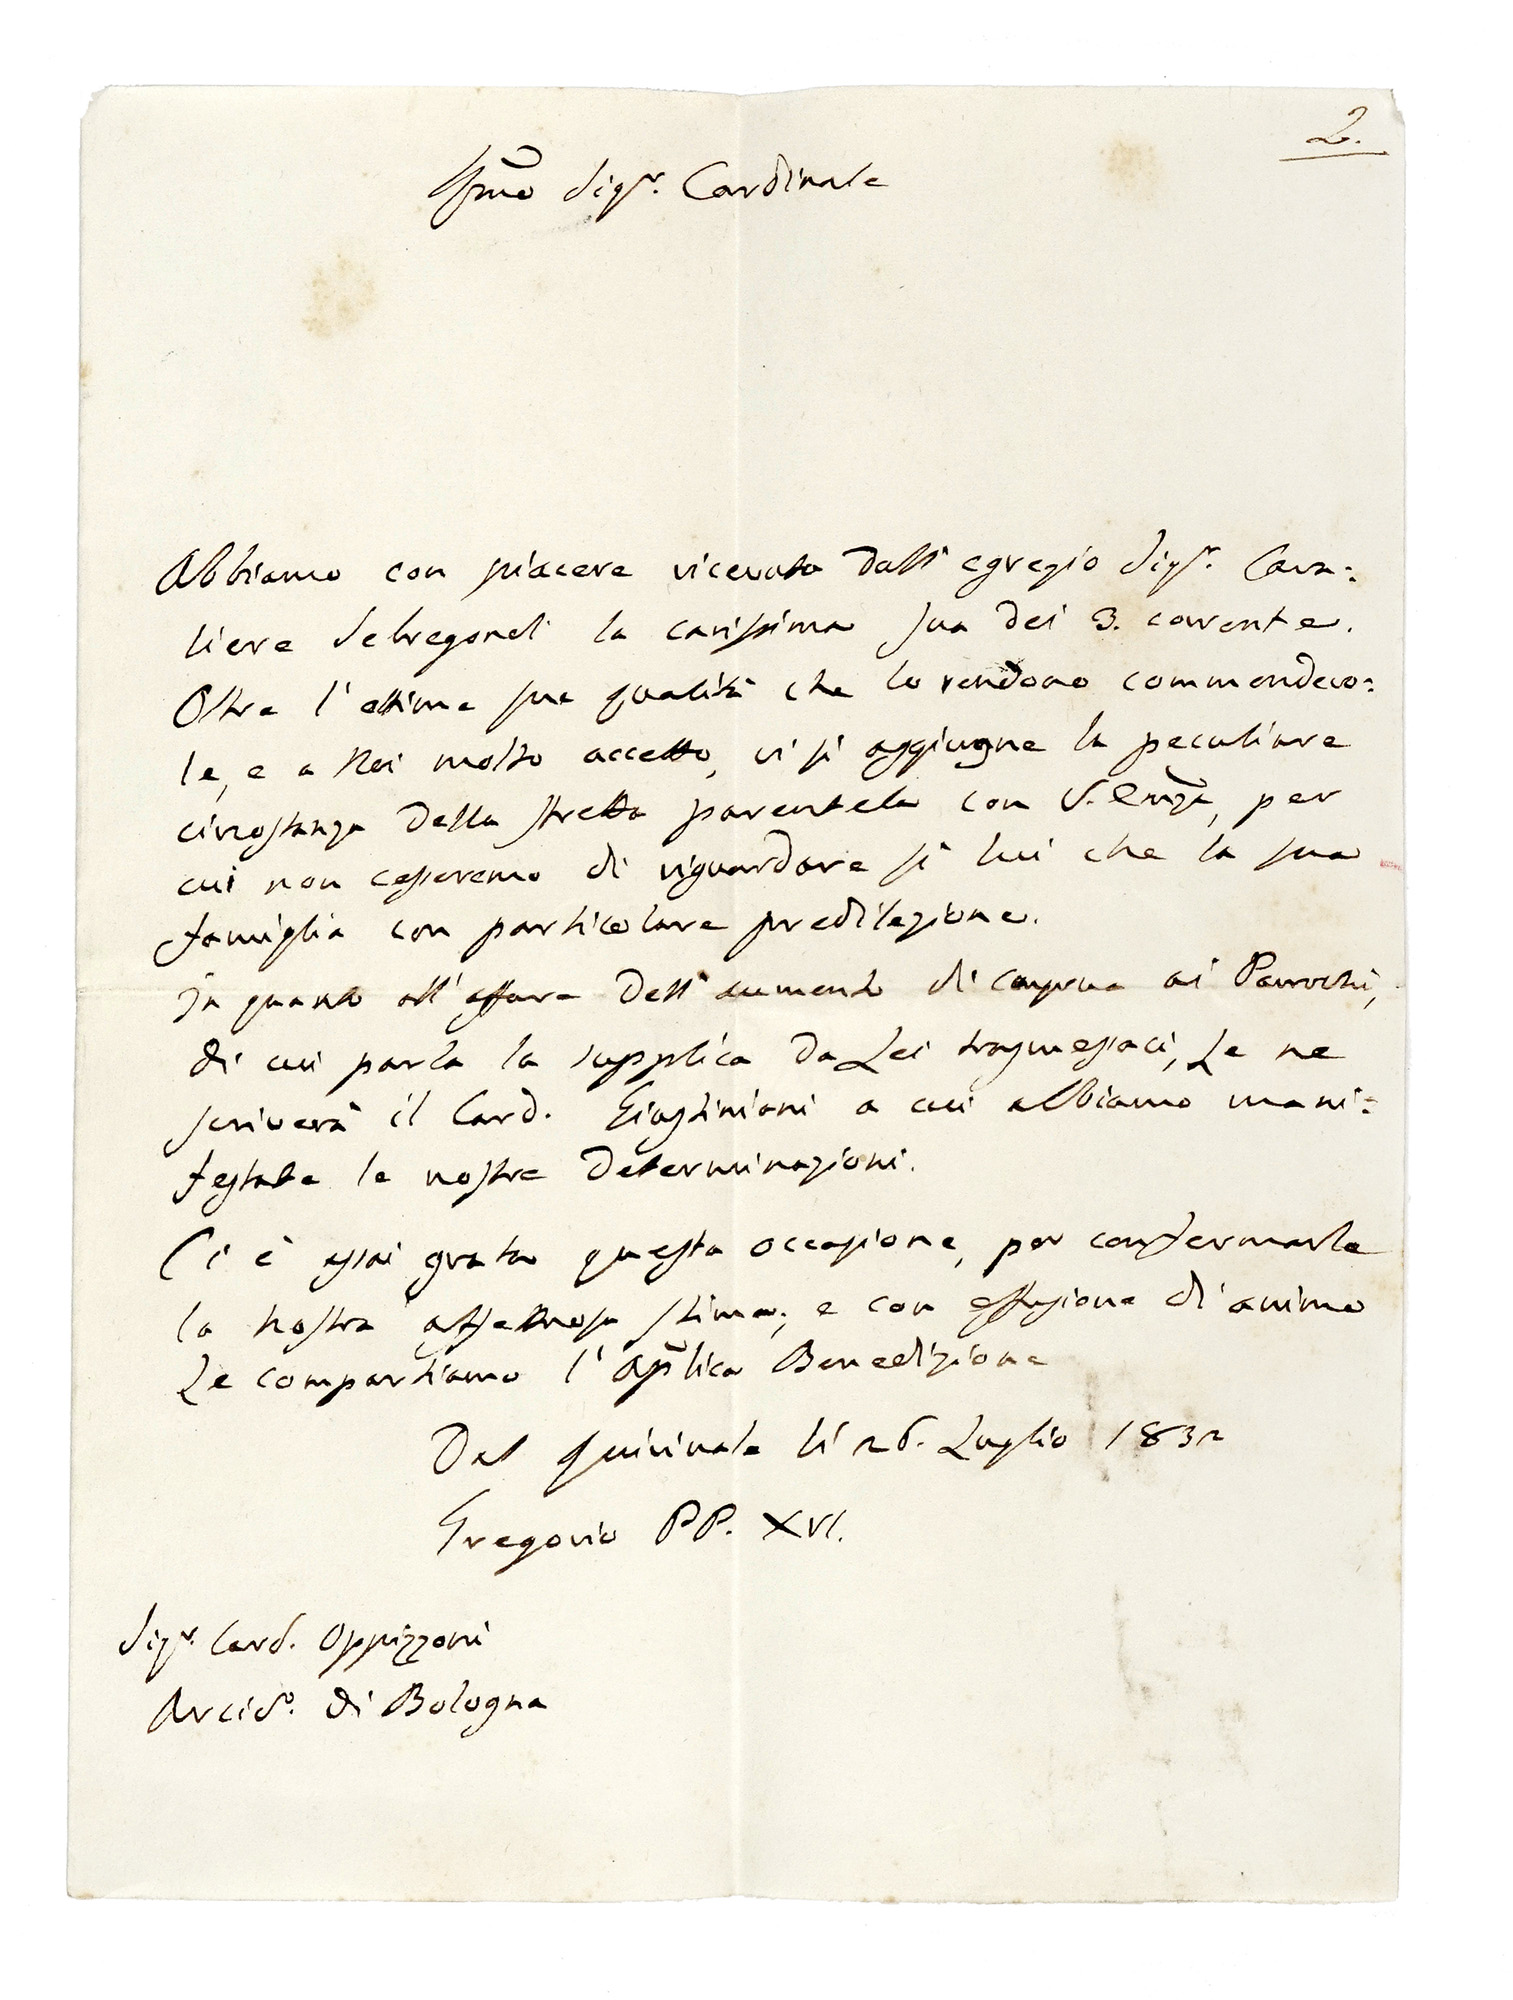 2.
Sigr. Cardinale
Abbiamo con piacere ricevuto dall' egregio Sigr. Cava=
liere la carissima sua dei 3. corrente.
Oltre l'ottime sue qualità che lo rendono commendevo=
le, e a Noi molto accetto, vi si aggiugne la peculiare
circostanza della stretta parentela con V. Emza, per
cui non cesseremo di riguardare sì lui che la sua
famiglia con particolare predilezione.
In quanto all'affare dell'aumento di congrua ai Parrochi,
di cui parla la supplica da Lei trasmessaci, Le ne
scriverà il Card. Giustiniani a cui abbiamo mani=
festate le nostre determinazioni.
Ci è assai grata questa occasione, per confermarle
la nostra affettuosa stima; e con effusione di animo
Le compartiamo l'Aplica Benedizione
Dal Quirinale li 26. Luglio 1832
Gregorio PP. XVI.
Sigr. Card. Oppizzoni
Arcivo. di Bologna